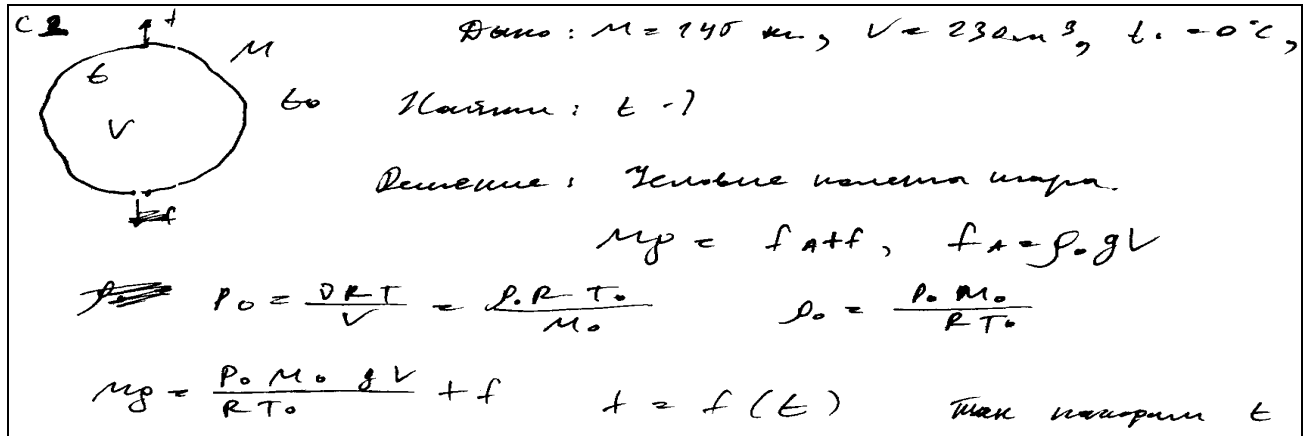 C2 f M Дано: M = 145 кг, V = 230 м³, t₀ = 0°C,
t t₀ Найти: t - ?
V
Решение: Условие полета шара.
f
Mg = f_A + f, f_A = ρ₀gV
P₀ = νRT/V = ρ₀RT₀/M₀ ρ₀ = P₀M₀/RT₀
Mg = P₀M₀gV/RT₀ + f f = f(t) так находим t